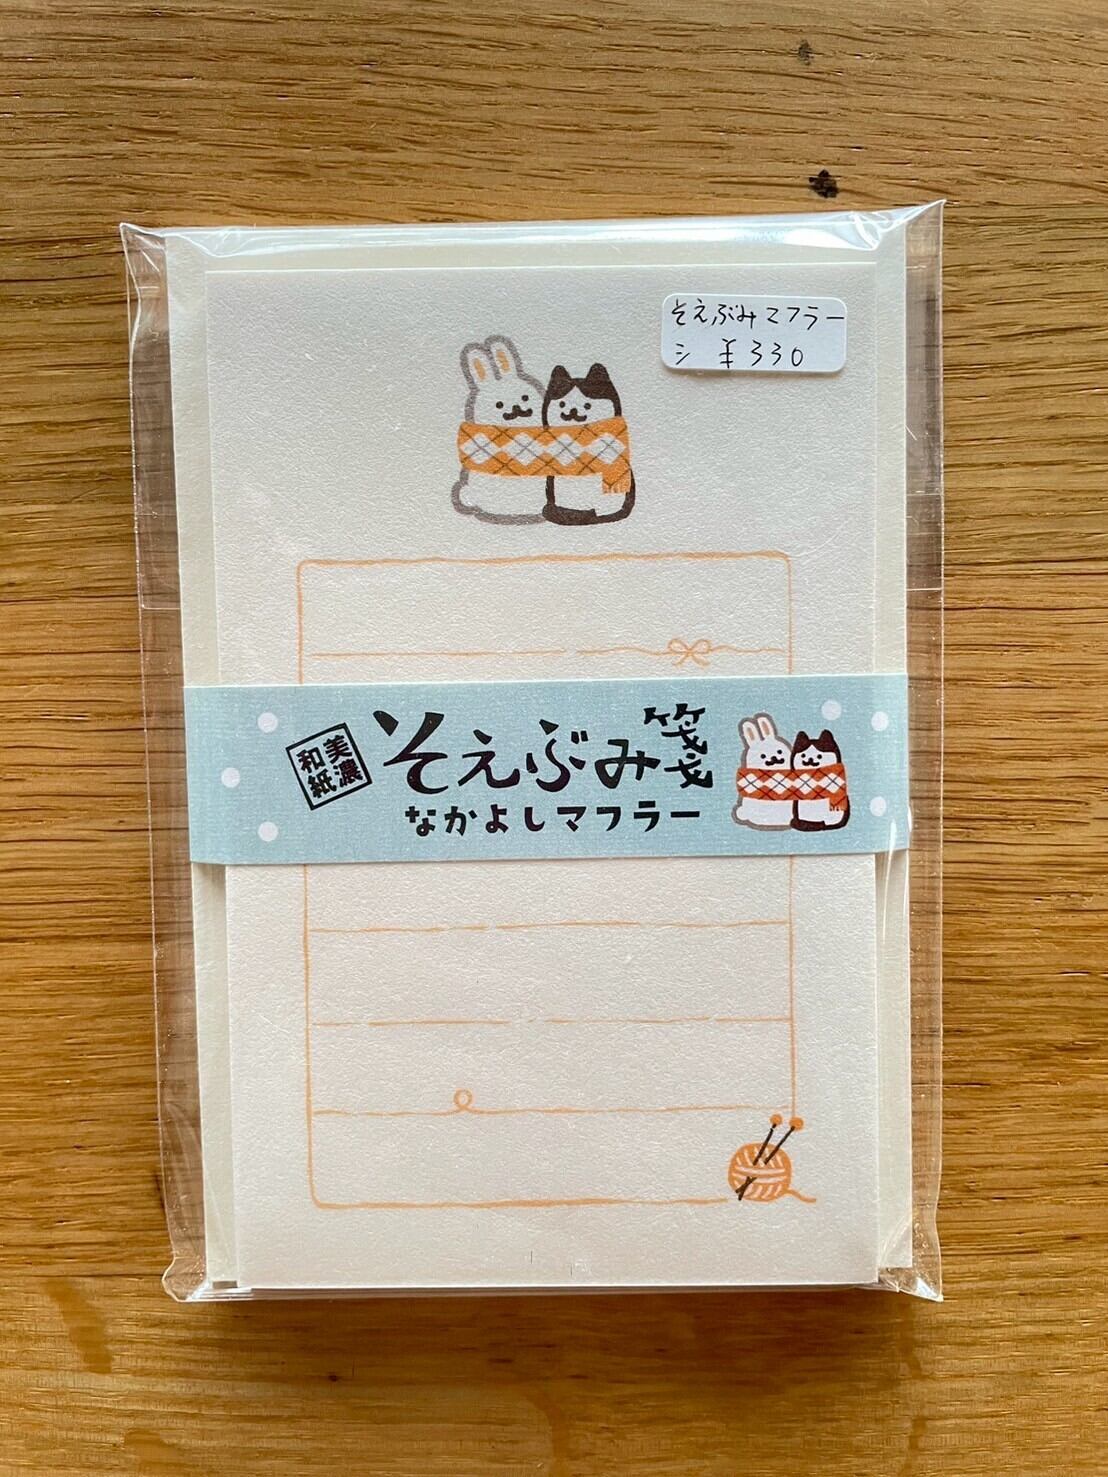 そえぶみマフラー
シ ¥330
美濃
和紙
そえぶみ箋
なかよしマフラー